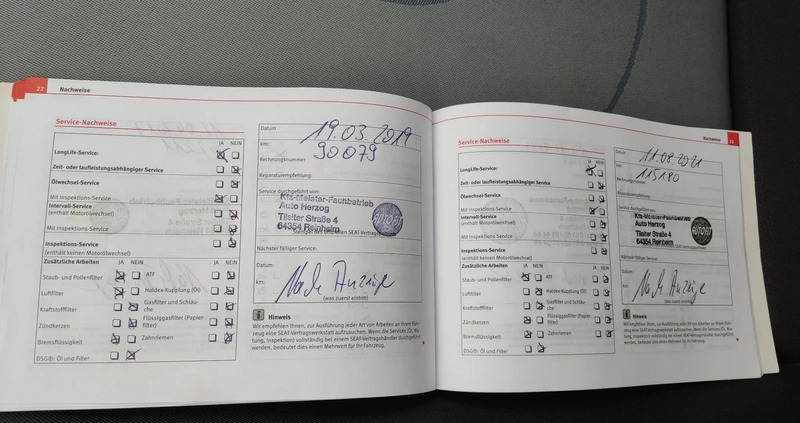 22
Nachweise
Service-Nachweise
JA NEIN
LongLife-Service:
Zeit- oder laufleistungsabhängiger Service
Ölwechsel-Service
Mit Inspektions-Service
Intervall-Service
(enthält Motorölwechsel)
Mit Inspektions-Service
Inspektions-Service
(enthält keinen Motorölwechsel)
Zusätzliche Arbeiten JA NEIN JA NEIN
Staub- und Pollenfilter ATF
Luftfilter Haldex-Kupplung (Öl)
Kraftstofffilter Gasfilter und Schläu-
che
Zündkerzen Flüssiggasfilter (Papier-
filter)
Bremsflüssigkeit Zahnriemen
DSG®: Öl und Filter
Datum 19.03.2019
km: 90079
Rechnungsnummer
Reparaturempfehlung:
Service durchgeführt von:
Kfz-Meister-Fachbetrieb
Auto Herzog
Tilsiter Straße 4
64354 Reinheim
AUTOFIT
Nächster fälliger Service:
Datum:
km: Nach Anzeige
(was zuerst eintritt)
Hinweis
Wir empfehlen Ihnen, zur Ausführung jeder Art von Arbeiten an Ihrem Fahr-
zeug eine SEAT-Vertragswerkstatt aufzusuchen. Wenn die Services (Öl, War-
tung, Inspektion) vollständig bei einem SEAT-Vertragshändler durchgeführt
werden, bedeutet dies einen Mehrwert für Ihr Fahrzeug.
Nachweise
Service-Nachweise
JA NEIN
LongLife-Service:
Zeit- oder laufleistungsabhängiger Service
Ölwechsel-Service
Mit Inspektions-Service
Intervall-Service
(enthält Motorölwechsel)
Mit Inspektions-Service
Inspektions-Service
(enthält keinen Motorölwechsel)
Zusätzliche Arbeiten JA NEIN JA NEIN
Staub- und Pollenfilter ATF
Luftfilter Haldex-Kupplung (Öl)
Kraftstofffilter Gasfilter und Schläu-
che
Zündkerzen Flüssiggasfilter (Papier-
filter)
Bremsflüssigkeit Zahnriemen
DSG®: Öl und Filter
Datum 11.08.2021
km: 115180
Rechnungsnummer
Reparaturempfehlung:
Service durchgeführt von:
Kfz-Meister-Fachbetrieb
Auto Herzog
Tilsiter Straße 4
64354 Reinheim
AUTOFIT
Nächster fälliger Service:
Datum:
km: Nach Anzeige
(was zuerst eintritt)
Hinweis
Wir empfehlen Ihnen, zur Ausführung jeder Art von Arbeiten an Ihrem Fahr-
zeug eine SEAT-Vertragswerkstatt aufzusuchen. Wenn die Services (Öl, War-
tung, Inspektion) vollständig bei einem SEAT-Vertragshändler durchgeführt
werden, bedeutet dies einen Mehrwert für Ihr Fahrzeug.